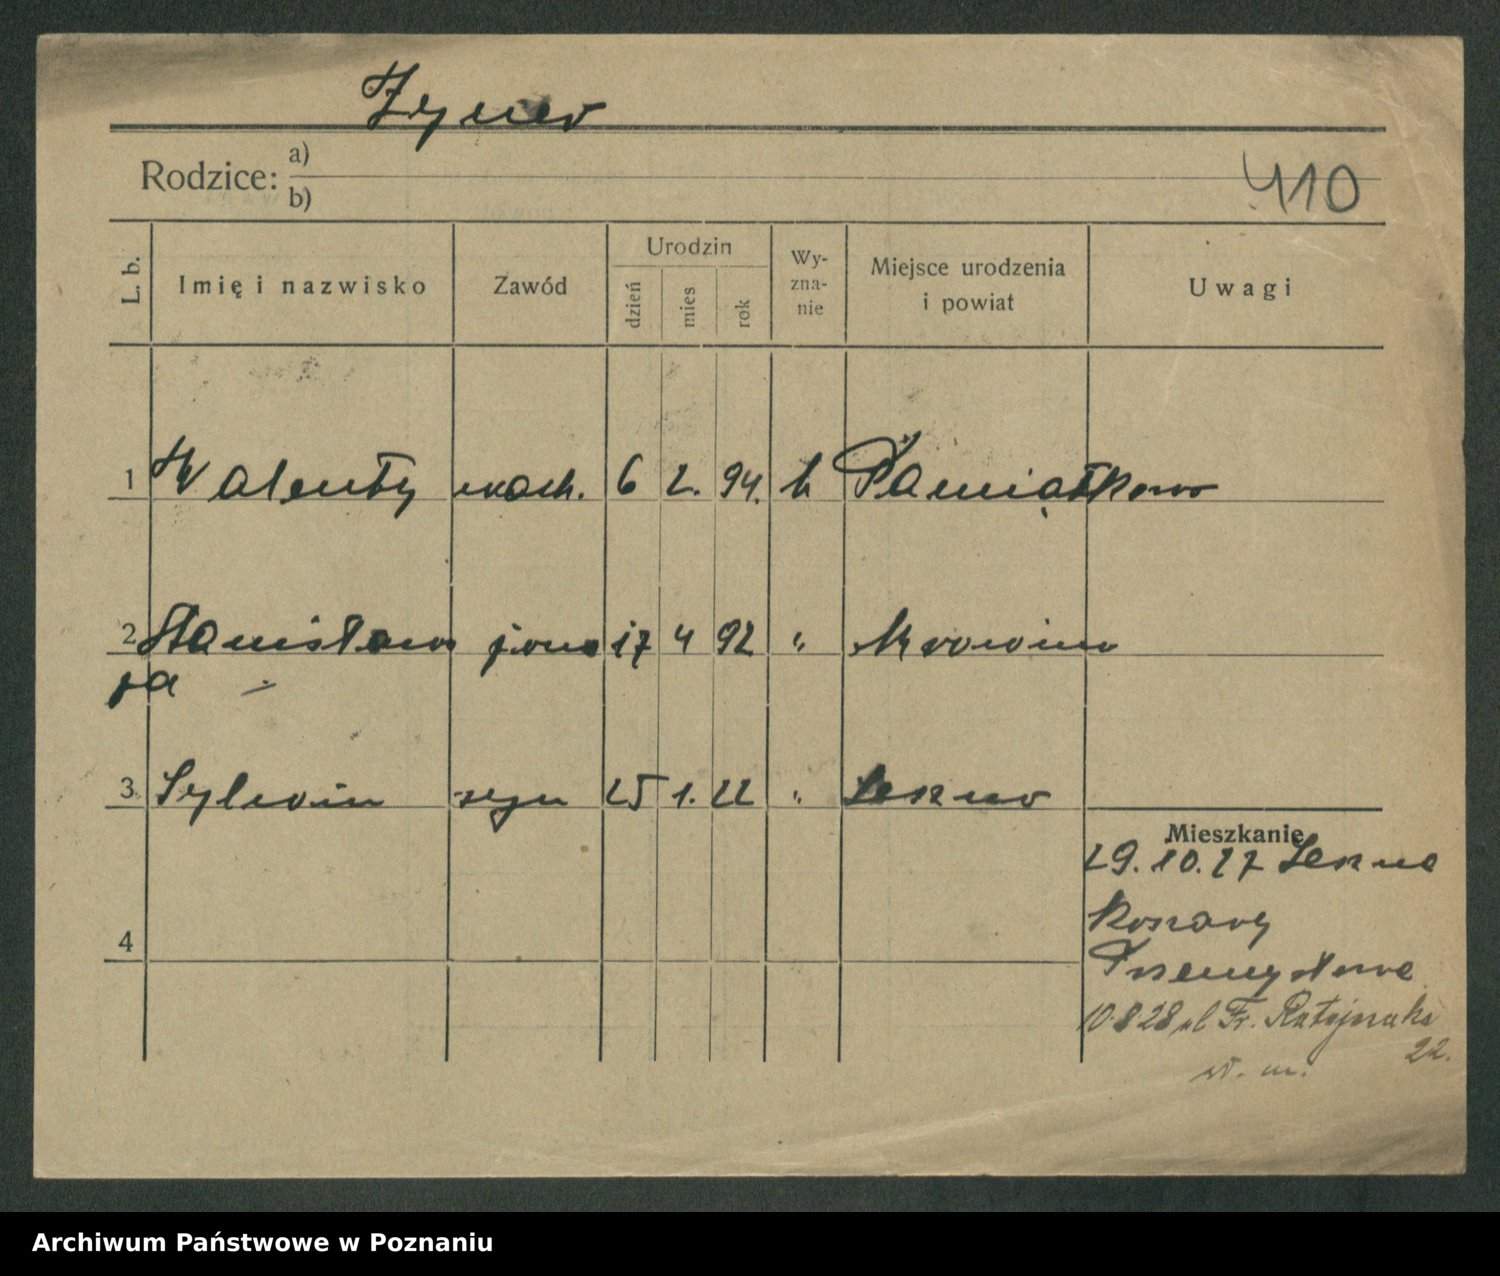 Żyner
Rodzice: a)
b)
410
L. b. Imię i nazwisko Zawód Urodzin dzień mies rok Wy-zna-nie Miejsce urodzenia i powiat Uwagi
1 Walenty mach. 6 2. 94. k Pamiątkowo
2 Stanisława żona 17 4 92 " Mrowino
3 Sylwin syn 25 1. 22 " Leszno
Mieszkanie
29.10.27 Leszno
Koszary
Przemysłowe
4
10.8.28 ul Fr. Ratajczaka
22.
w. m.
Archiwum Państwowe w Poznaniu